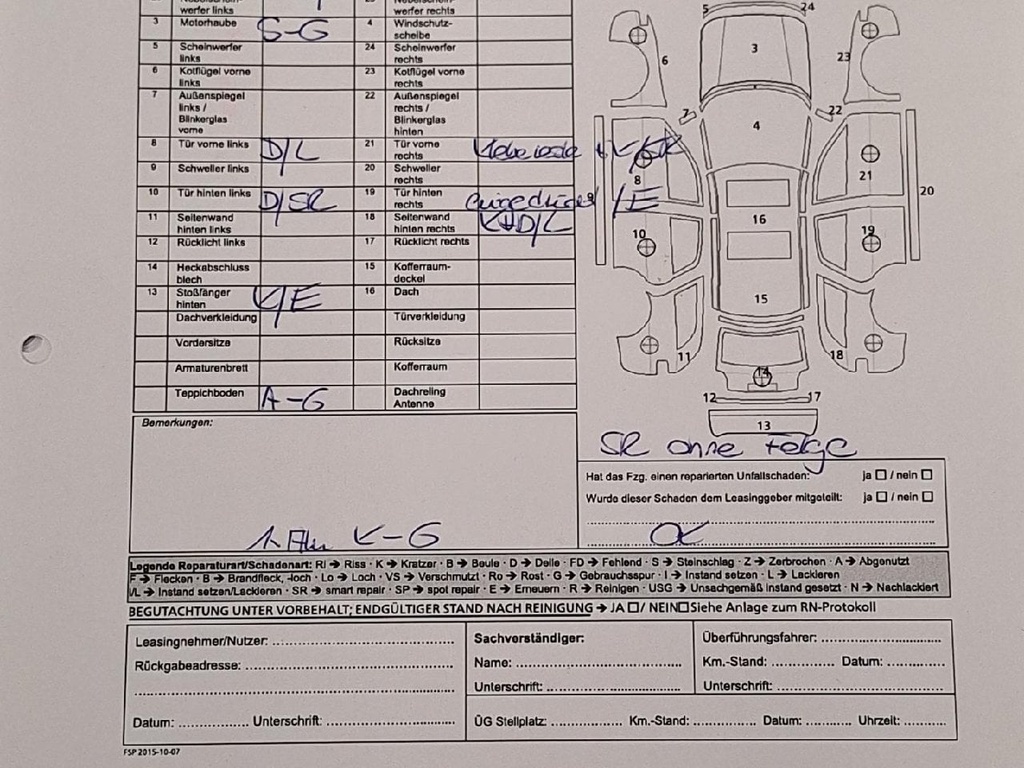 werfer links werfer rechts
3 Motorhaube S-G 4 Windschutz-
scheibe
5 Scheinwerfer links 24 Scheinwerfer rechts
6 Kotflügel vorne links 23 Kotflügel vorne rechts
7 Außenspiegel links / Blinkerglas vorne 22 Außenspiegel rechts / Blinkerglas hinten
8 Tür vorne links D/L 21 Tür vorne rechts
9 Schweller links 20 Schweller rechts
10 Tür hinten links D/SR 19 Tür hinten rechts /E
11 Seitenwand hinten links 18 Seitenwand hinten rechts K+D/L
12 Rücklicht links 17 Rücklicht rechts
14 Heckabschluss blech 15 Kofferraum-
deckel
13 Stoßfänger hinten K/E 16 Dach
Dachverkleidung Türverkleidung
Vordersitze Rücksitze
Armaturenbrett Kofferraum
Teppichboden A-G Dachreling Antenne
5 24
3
6 23
7 22
4
8 21
20
16
10 19
15
11 18
14
12 17
13
Bemerkungen:
SR ohne Felge
Hat das Fzg. einen reparierten Unfallschaden: ja / nein
Wurde dieser Schaden dem Leasinggeber mitgeteilt: ja / nein
K-G
Legende Reparaturart/Schadenart: RI → Riss · K → Kratzer · B → Beule · D → Delle · FD → Fehlend · S → Steinschlag · Z → Zerbrochen · A → Abgenutzt
F → Flecken · B → Brandfleck, -loch · Lo → Loch · VS → Verschmutzt · Ro → Rost · G → Gebrauchsspur · I → Instand setzen · L → Lackieren
I/L → Instand setzen/Lackieren · SR → smart repair · SP → spot repair · E → Erneuern · R → Reinigen · USG → Unsachgemäß instand gesetzt · N → Nachlackiert
BEGUTACHTUNG UNTER VORBEHALT; ENDGÜLTIGER STAND NACH REINIGUNG → JA / NEIN Siehe Anlage zum RN-Protokoll
Leasingnehmer/Nutzer: Sachverständiger: Überführungsfahrer:
Rückgabeadresse: Name: Km.-Stand: Datum:
Unterschrift: Unterschrift:
Datum: Unterschrift: ÜG Stellplatz: Km.-Stand: Datum: Uhrzeit:
FSP 2015-10-07